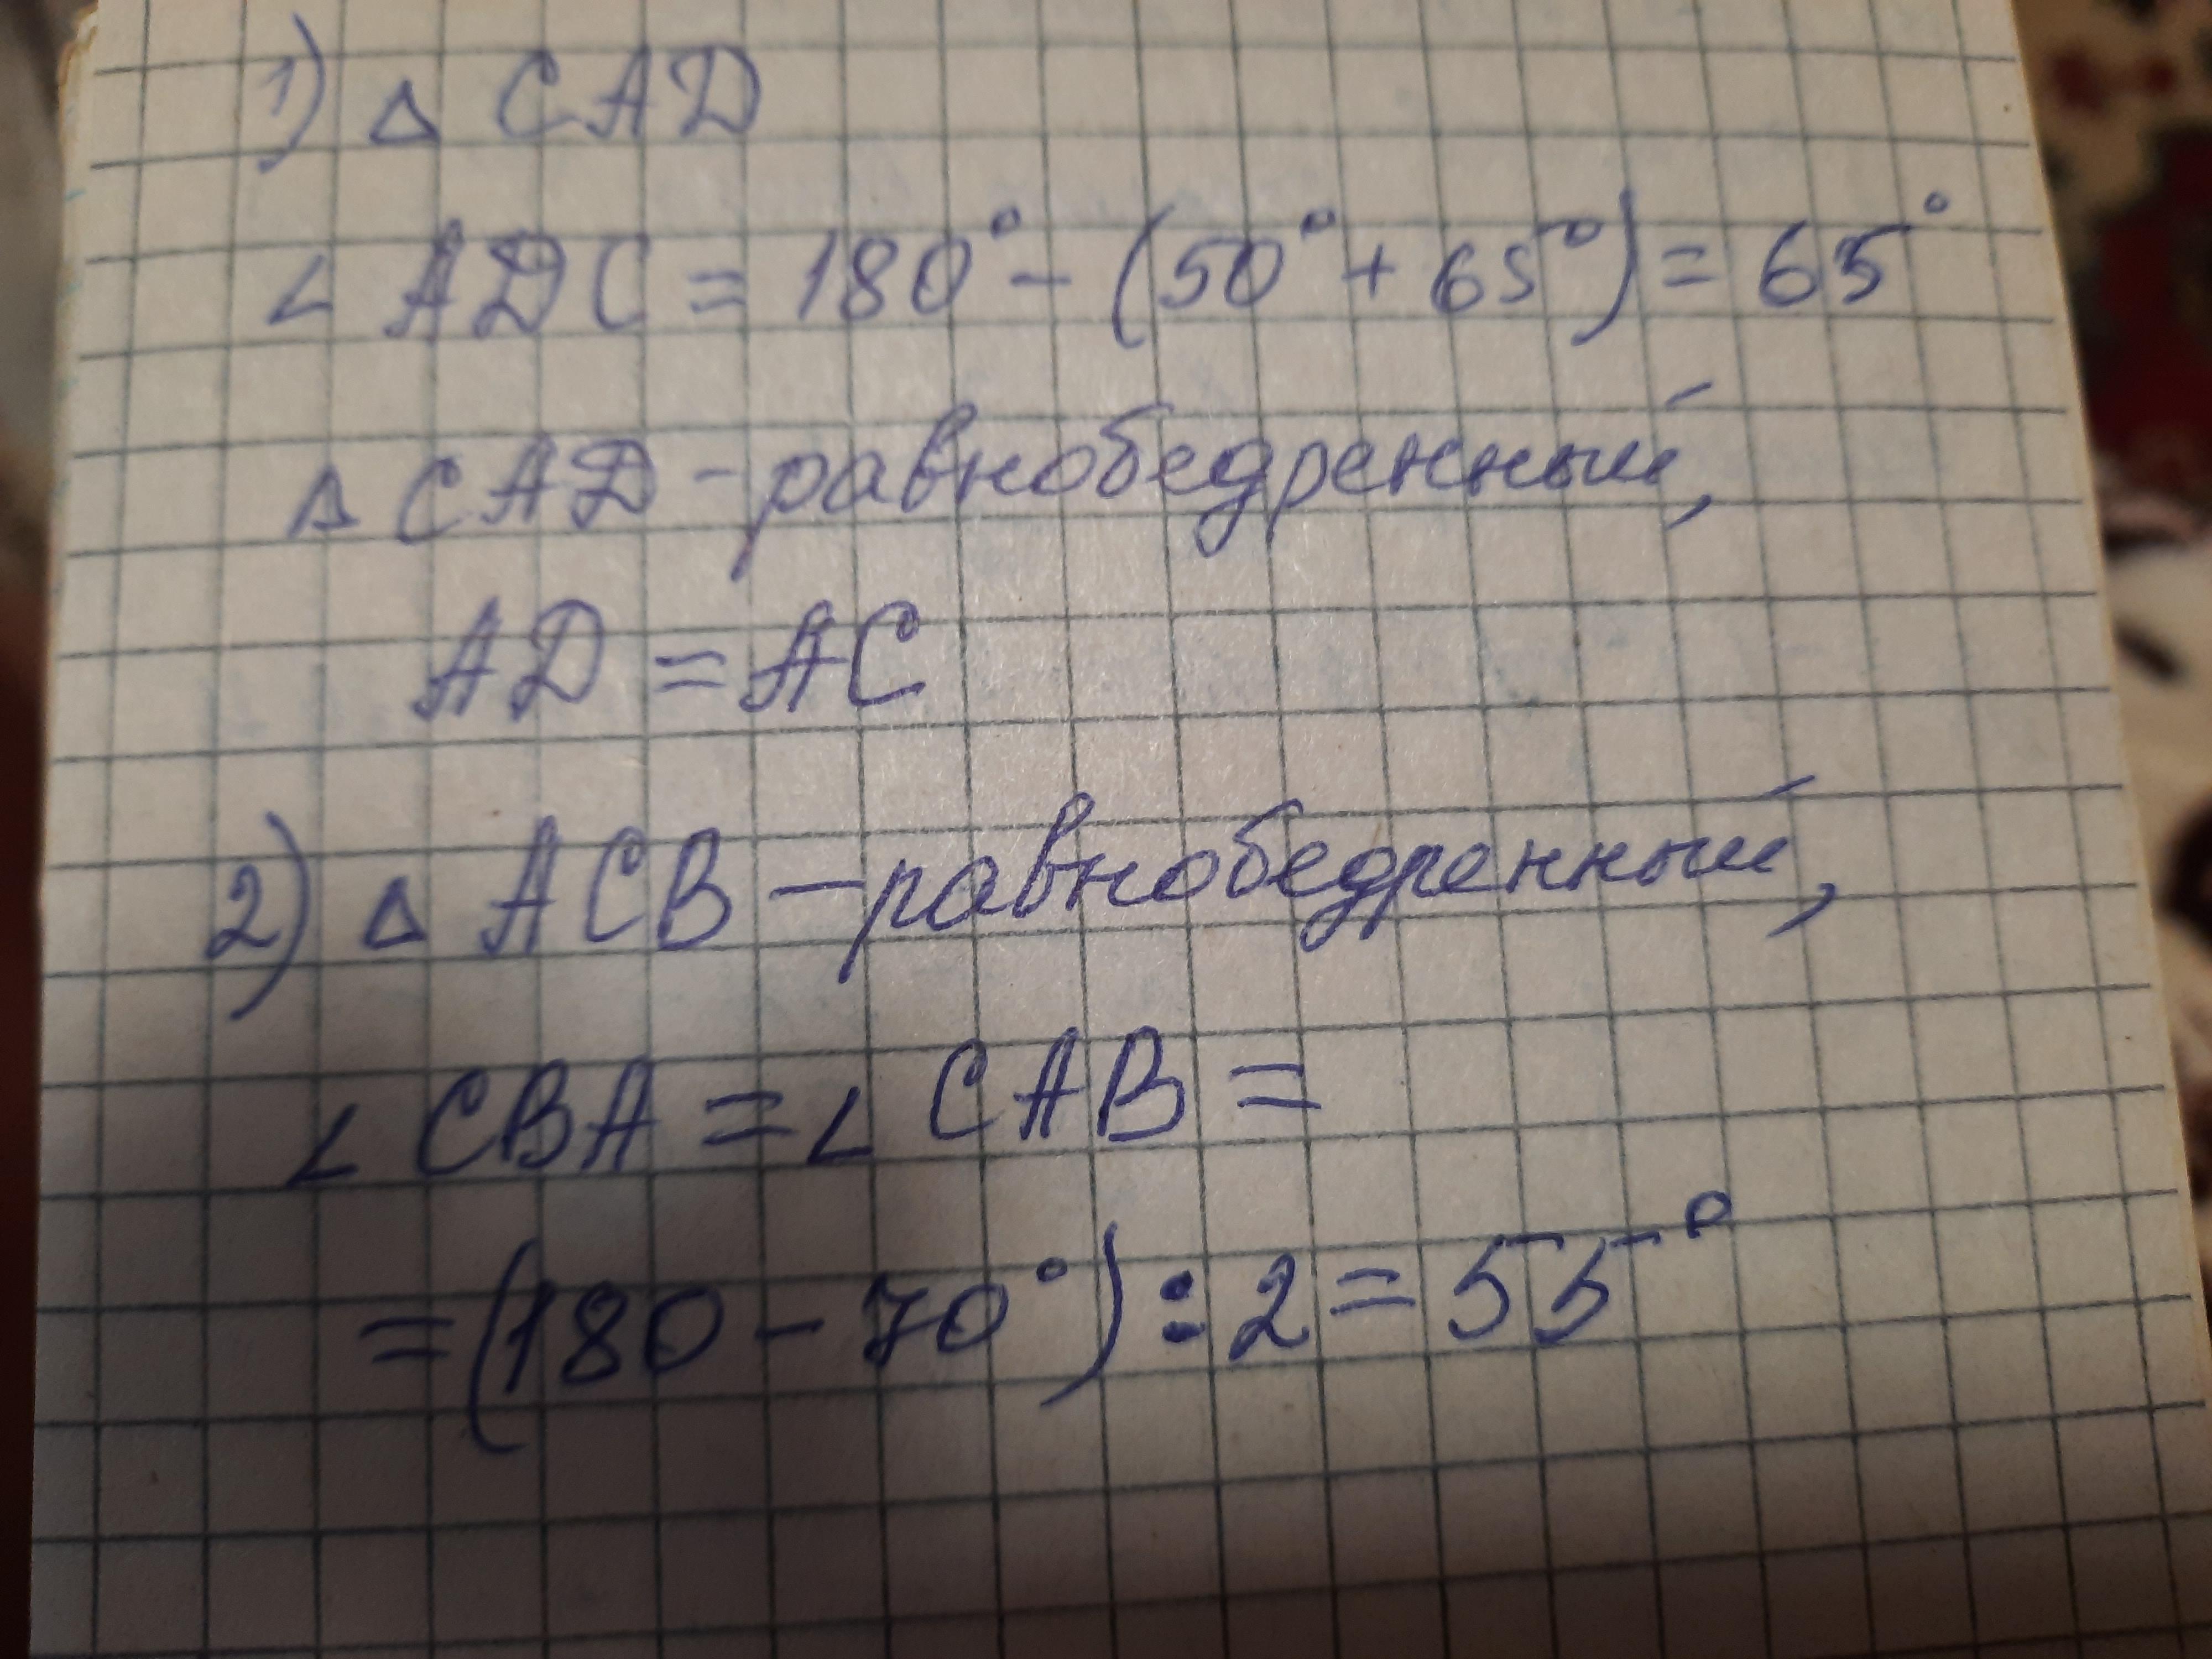 1) △ CAD
∠ ADC = 180° - (50° + 65°) = 65°
△ CAD - равнобедренный,
AD = AC
2) △ ACB - равнобедренный,
∠ CBA = ∠ CAB =
= (180 - 70°) : 2 = 55°